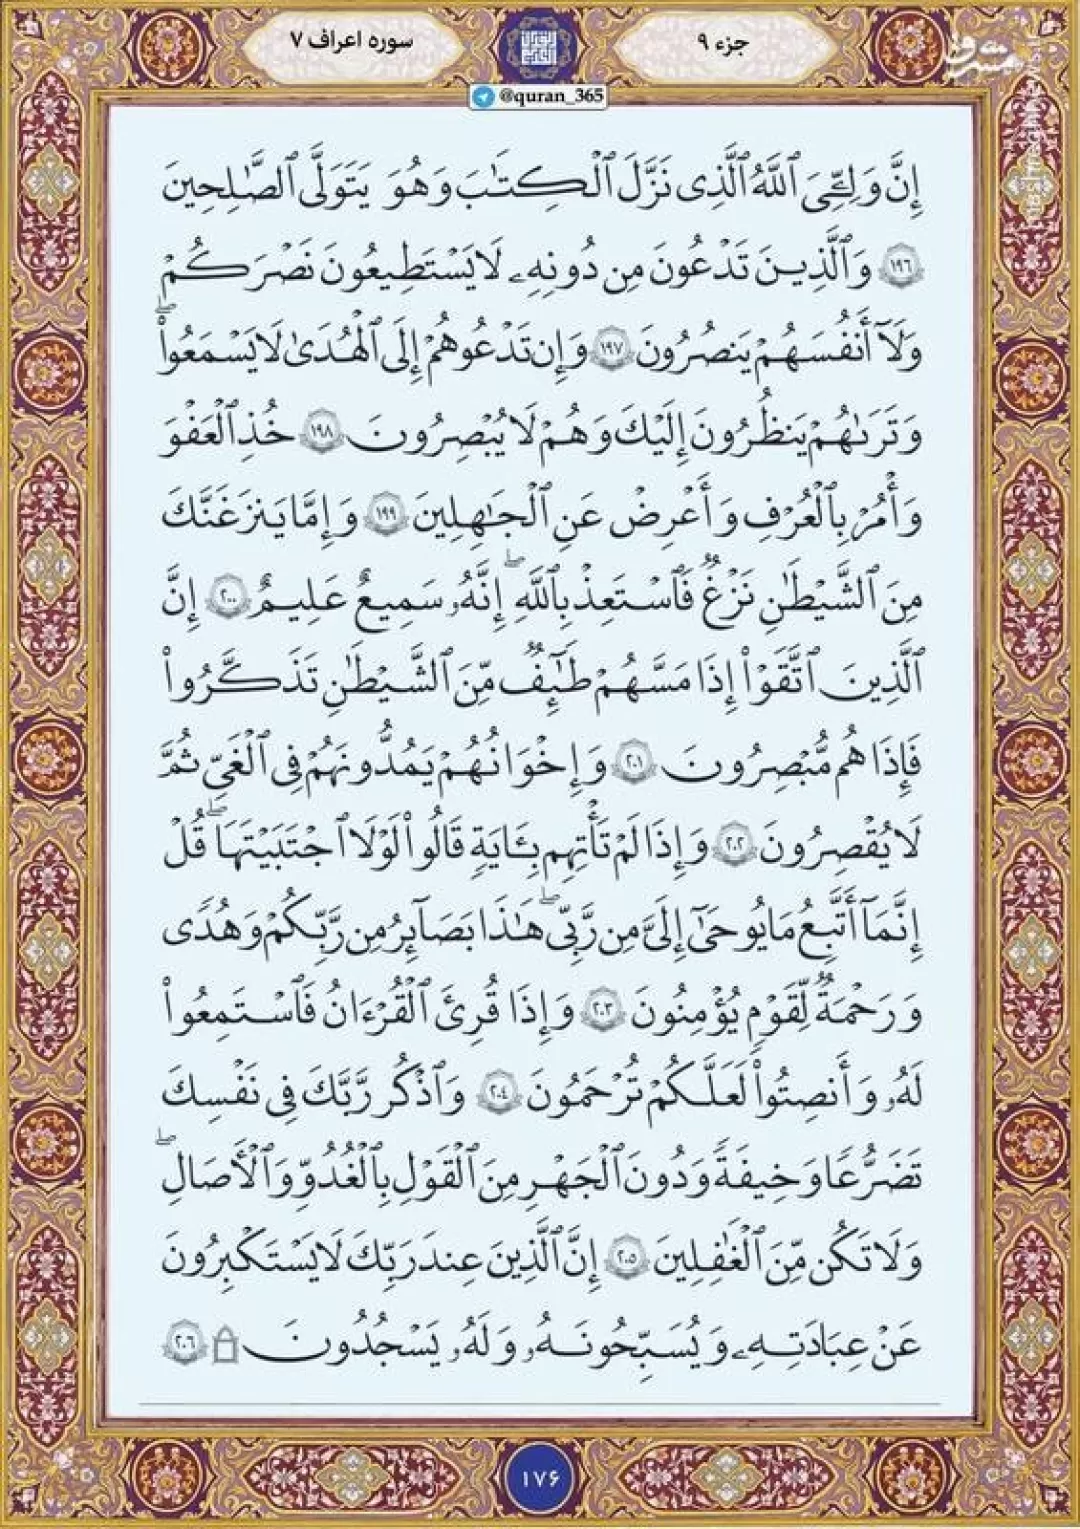 جزء ۹
سوره اعراف ۷
@quran_365
إِنَّ وَلِـِّۧىَ ٱللَّهُ ٱلَّذِى نَزَّلَ ٱلْكِتَـٰبَ وَهُوَ يَتَوَلَّى ٱلصَّـٰلِحِينَ
۱۹۶ وَٱلَّذِينَ تَدْعُونَ مِن دُونِهِۦ لَا يَسْتَطِيعُونَ نَصْرَكُمْ
وَلَآ أَنفُسَهُمْ يَنصُرُونَ ۱۹۷ وَإِن تَدْعُوهُمْ إِلَى ٱلْهُدَىٰ لَا يَسْمَعُوا۟ ۖ
وَتَرَىٰهُمْ يَنظُرُونَ إِلَيْكَ وَهُمْ لَا يُبْصِرُونَ ۱۹۸ خُذِ ٱلْعَفْوَ
وَأْمُرْ بِٱلْعُرْفِ وَأَعْرِضْ عَنِ ٱلْجَـٰهِلِينَ ۱۹۹ وَإِمَّا يَنزَغَنَّكَ
مِنَ ٱلشَّيْطَـٰنِ نَزْغٌ فَٱسْتَعِذْ بِٱللَّهِ ۖ إِنَّهُۥ سَمِيعٌ عَلِيمٌ ۲۰۰ إِنَّ
ٱلَّذِينَ ٱتَّقَوْا۟ إِذَا مَسَّهُمْ طَـٰٓئِفٌ مِّنَ ٱلشَّيْطَـٰنِ تَذَكَّرُوا۟
فَإِذَا هُم مُّبْصِرُونَ ۲۰۱ وَإِخْوَانُهُمْ يَمُدُّونَهُمْ فِى ٱلْغَىِّ ثُمَّ
لَا يُقْصِرُونَ ۲۰۲ وَإِذَا لَمْ تَأْتِهِم بِـَٔايَةٍ قَالُوا۟ لَوْلَا ٱجْتَبَيْتَهَا ۚ قُلْ
إِنَّمَآ أَتَّبِعُ مَا يُوحَىٰٓ إِلَىَّ مِن رَّبِّى ۚ هَـٰذَا بَصَآئِرُ مِن رَّبِّكُمْ وَهُدًى
وَرَحْمَةٌ لِّقَوْمٍ يُؤْمِنُونَ ۲۰۳ وَإِذَا قُرِئَ ٱلْقُرْءَانُ فَٱسْتَمِعُوا۟
لَهُۥ وَأَنصِتُوا۟ لَعَلَّكُمْ تُرْحَمُونَ ۲۰۴ وَٱذْكُر رَّبَّكَ فِى نَفْسِكَ
تَضَرُّعًا وَخِيفَةً وَدُونَ ٱلْجَهْرِ مِنَ ٱلْقَوْلِ بِٱلْغُدُوِّ وَٱلْأَصَالِ ۖ
وَلَا تَكُن مِّنَ ٱلْغَـٰفِلِينَ ۲۰۵ إِنَّ ٱلَّذِينَ عِندَ رَبِّكَ لَا يَسْتَكْبِرُونَ
عَنْ عِبَادَتِهِۦ وَيُسَبِّحُونَهُۥ وَلَهُۥ يَسْجُدُونَ ۩ ۲۰۶
۱۷۶